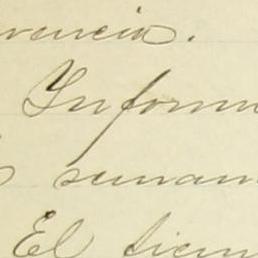 rencia.
Inform
suman
El tiem